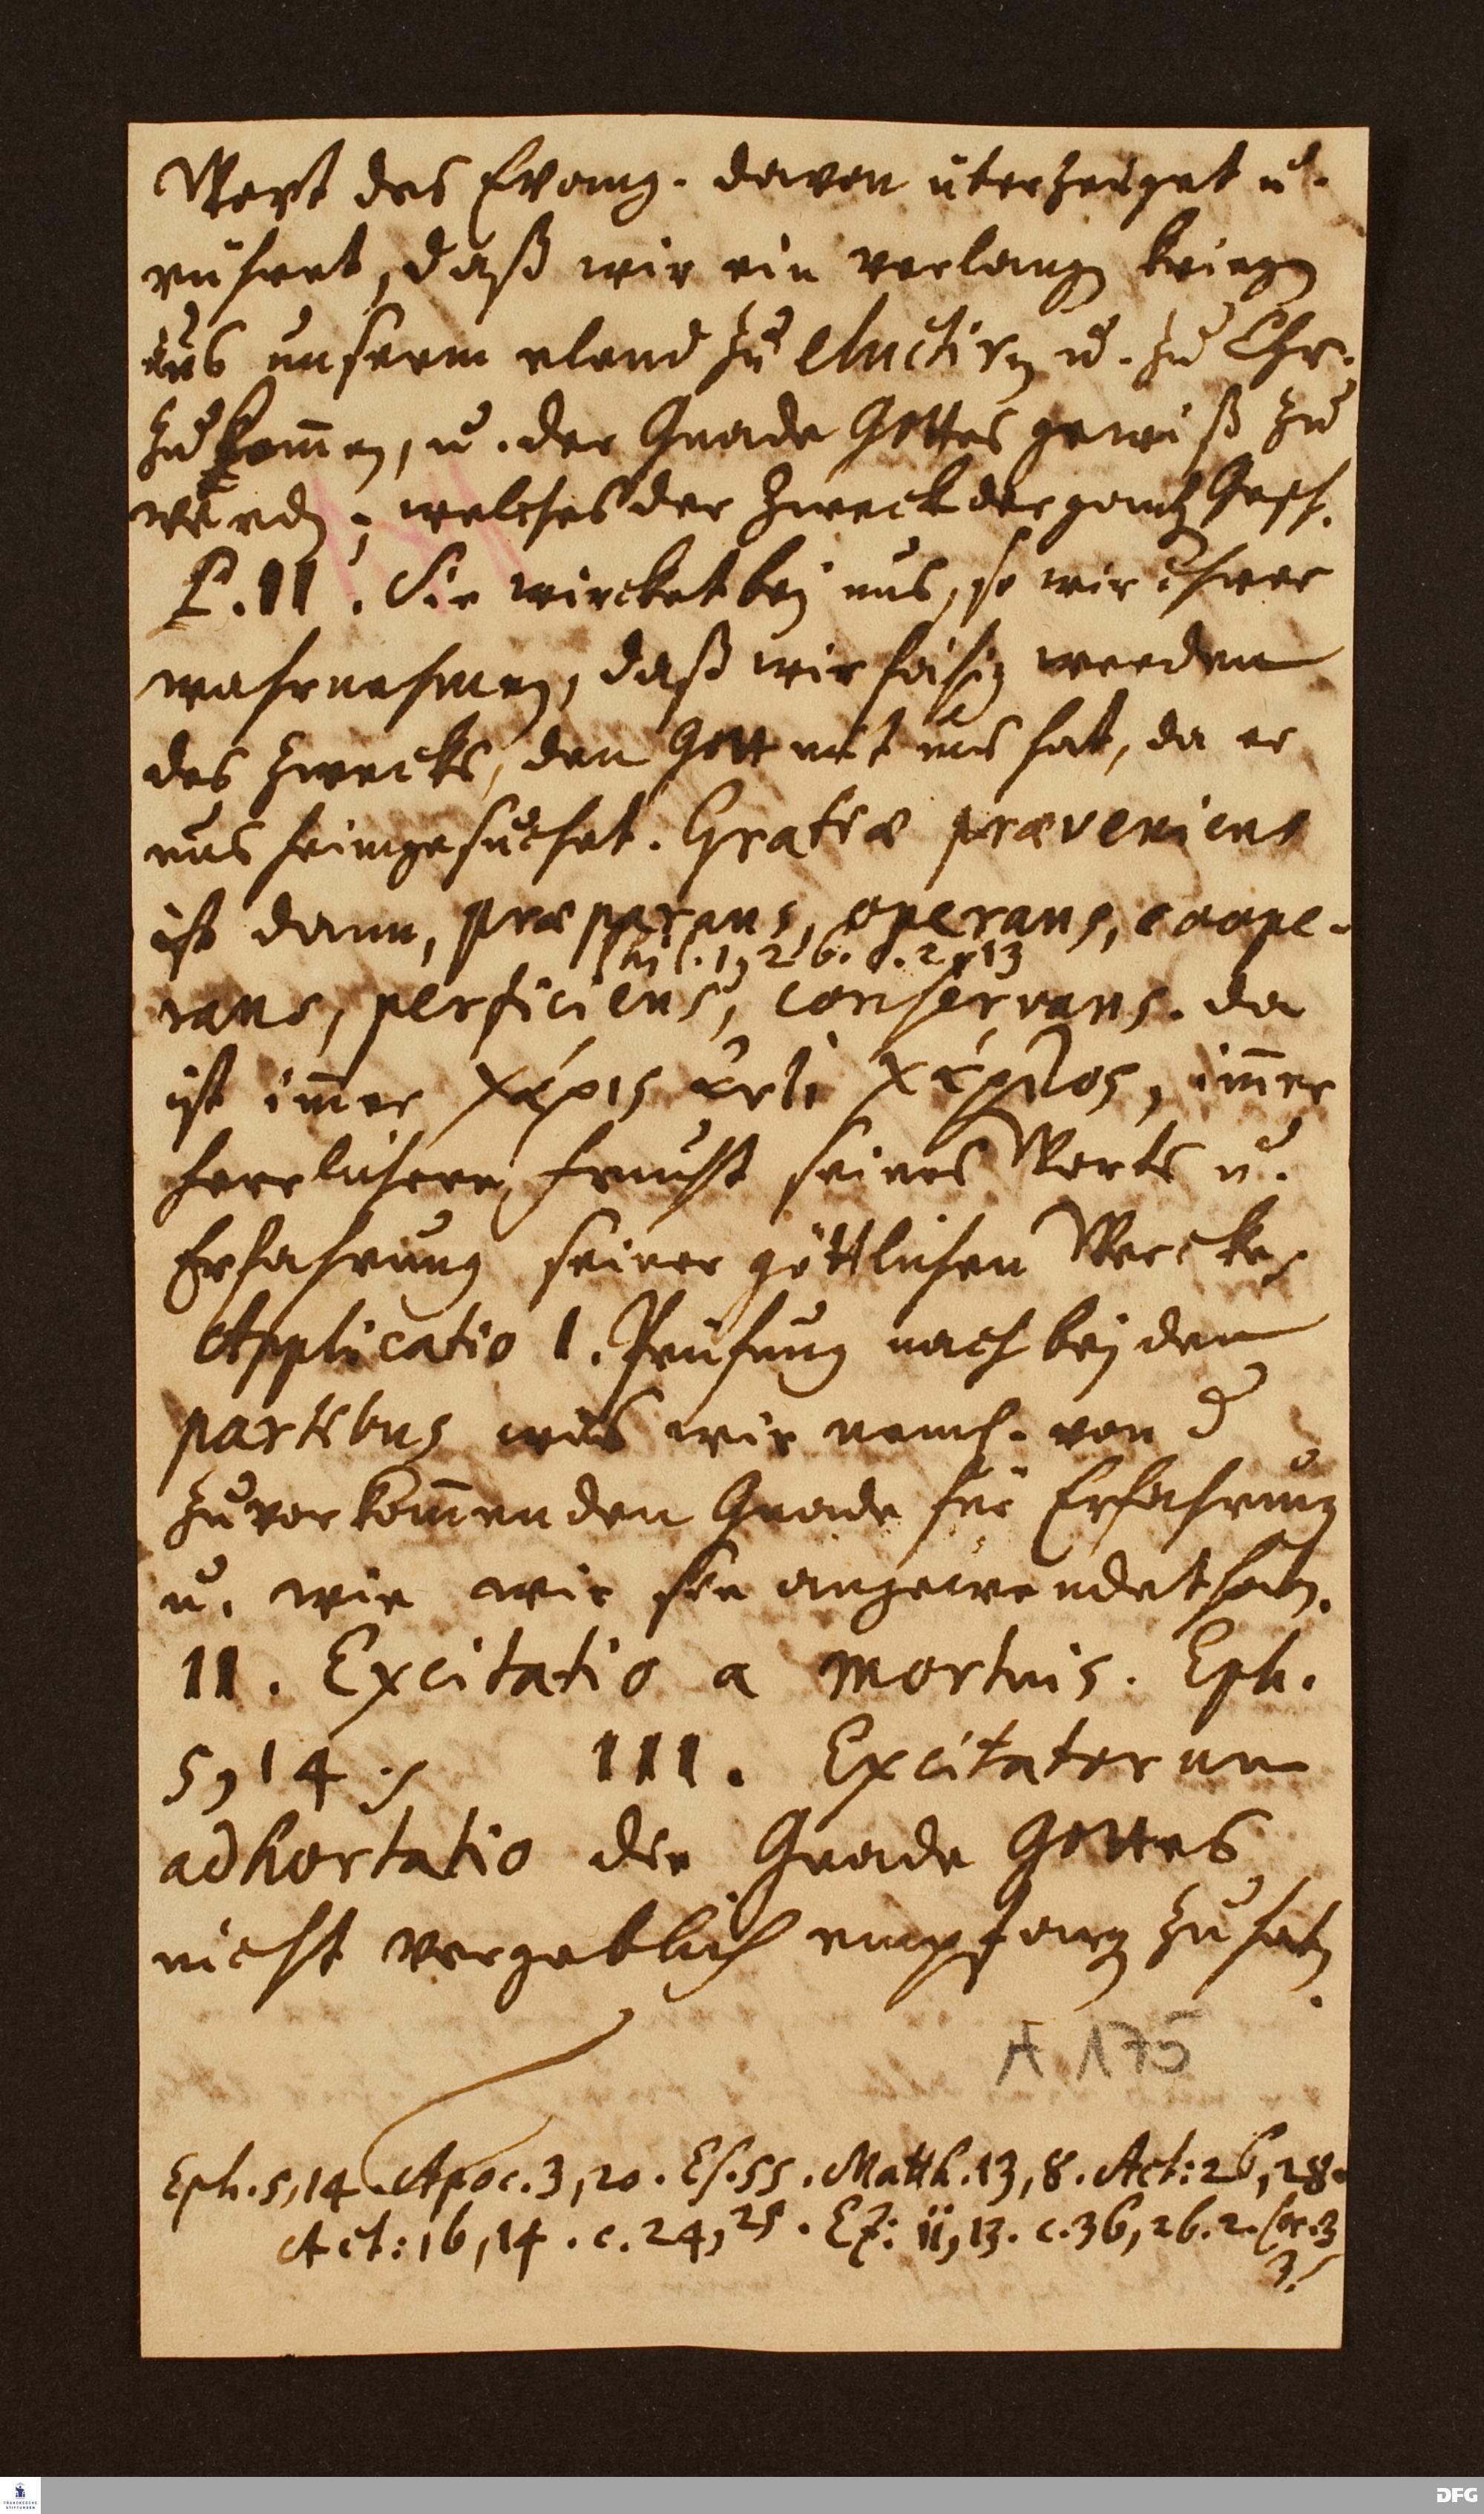 Wort des Evang. davon überzeuget u.
rühret, daß wir ein verlangen kriegen
aus unserm elend zu eluctiren u. zu Chr.
zu kommen, u. der Gnade Gottes gewiß zu
werden; welches der Zweck der gantzen Gesch.
P. II. Sie wircket bey uns, so wir ihrer
wahrnehmen, daß wir fähig werden
des Zwecks, den Gott mit uns hat, da er
uns heimgesuchet. Gratia praeveniens
ist dann, praeparans, operans, coope-
Phil. 1, 6. c. 2, 13
rans, perficiens, conservans. da
ist immer χάρις ἀντὶ χάριτος, immer
herrlichere frucht seines Worts u.
Erfahrung seiner göttlichen Wercke.
Applicatio I. Prüfung nach beyden
partibus was wir neml. von d
zuvorkommenden Gnade für Erfahrung
u. wie wir sie angewendet haben.
II. Excitatio a mortuis. Eph.
5, 14.
III. Excitatorum
adhortatio die Gnade Gottes
nicht vergeblich empfangen zu haben.
A 175
Eph. 5, 14. Apoc. 3, 20. Es. 55. Matth. 13, 8. Act: 26, 28.
Act: 16, 14. c. 24, 25. Ez: 11, 13. c. 36, 26. 2. Cor. 3
3.
FRANCKESCHE STIFTUNGEN
DFG